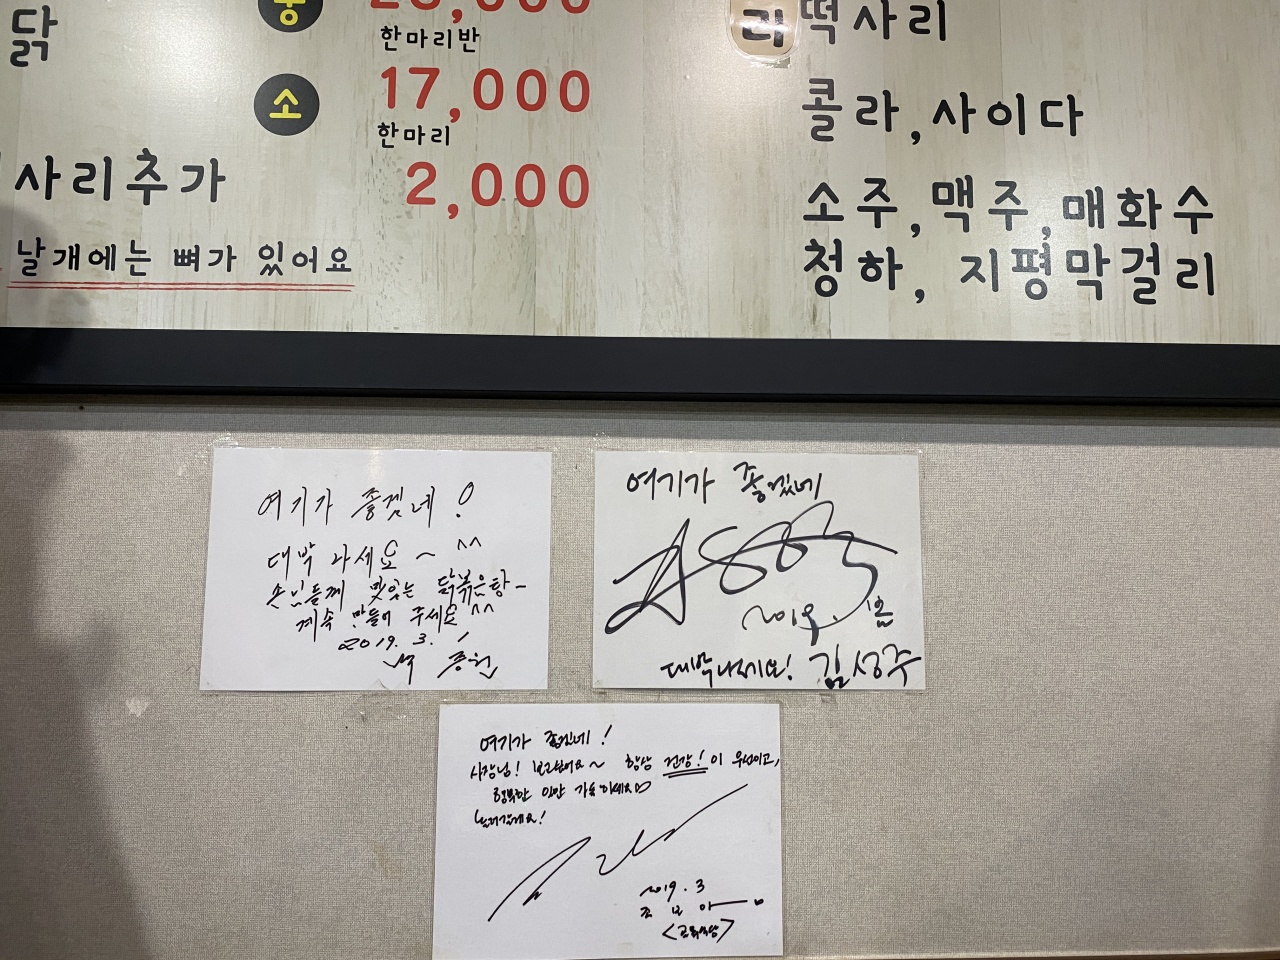 닭
한마리반
소 17,000
한마리
사리추가 2,000
날개에는 뼈가 있어요
리
떡사리
콜라,사이다
소주,맥주,매화수
청하, 지평막걸리
여기가 좋겠네!
대박 나세요~ ^^
손님들께 맛있는 닭볶음탕~
계속 만들어 주세요^^
2019. 3. 1
백 종원
여기가 좋겠네
2019.
대박나세요! 김성주
여기가 좋겠네!
사장님! 항상 건강!이 우선이고,
행복한 일만 가득하세요♡
2019. 3
조 보 아